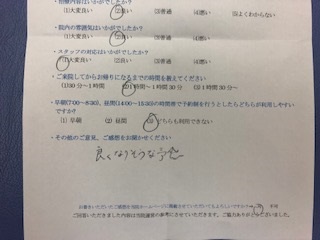 (1)大変良い (2)良い (3)普通 (4)悪い (5)よくわからない
・院内の雰囲気はいかがでしたか?
(1)大変良い (2)良い (3)普通 (4)悪い
・スタッフの対応はいかがでしたか?
(1)大変良い (2)良い (3)普通 (4)悪い
・ご来院してからお帰りになるまでの時間を教えてください
(1)30分~1時間 (2)1時間~1時間30分 (3)1時間30分
・早朝(7:00~8:30)、昼間(14:00~15:30)の時間帯で予約制を行うとしたらどちらが利用しやすい
ですか?
(1) 早朝 (2) 昼間 (3)どちらも利用できない
・その他のご意見、ご感想をお聞かせください
良くなりそうな予感
ご回答いただきました内容は当院運営の参考にさせていただきます。ご協力ありがとうございました。